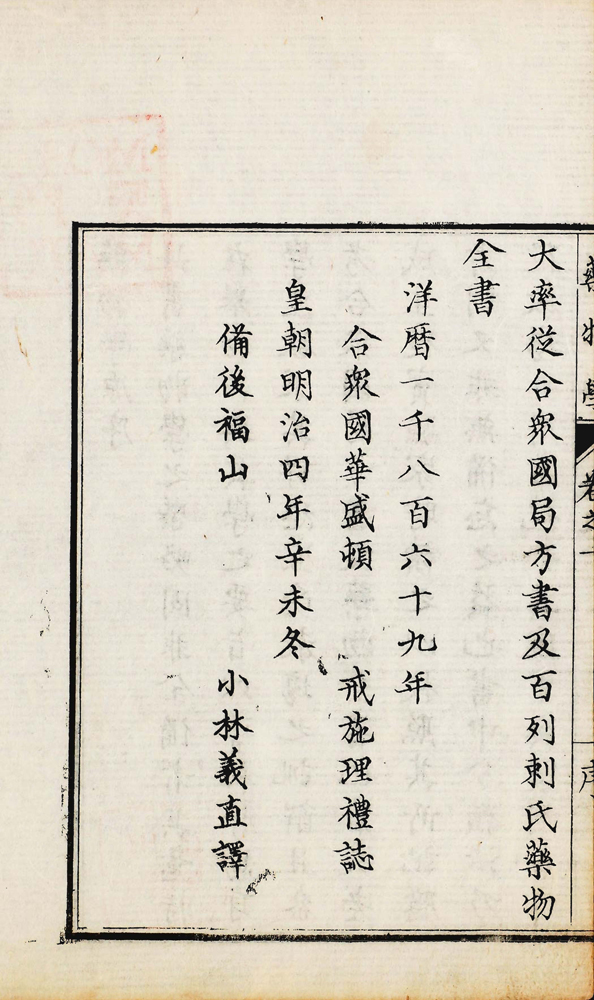 藥物學 卷之一 序
大率從合衆國局方書及百列刺氏藥物
全書
洋暦一千八百六十九年
合衆國華盛頓 戒施理禮誌
皇朝明治四年辛未冬
備後福山 小林義直譯